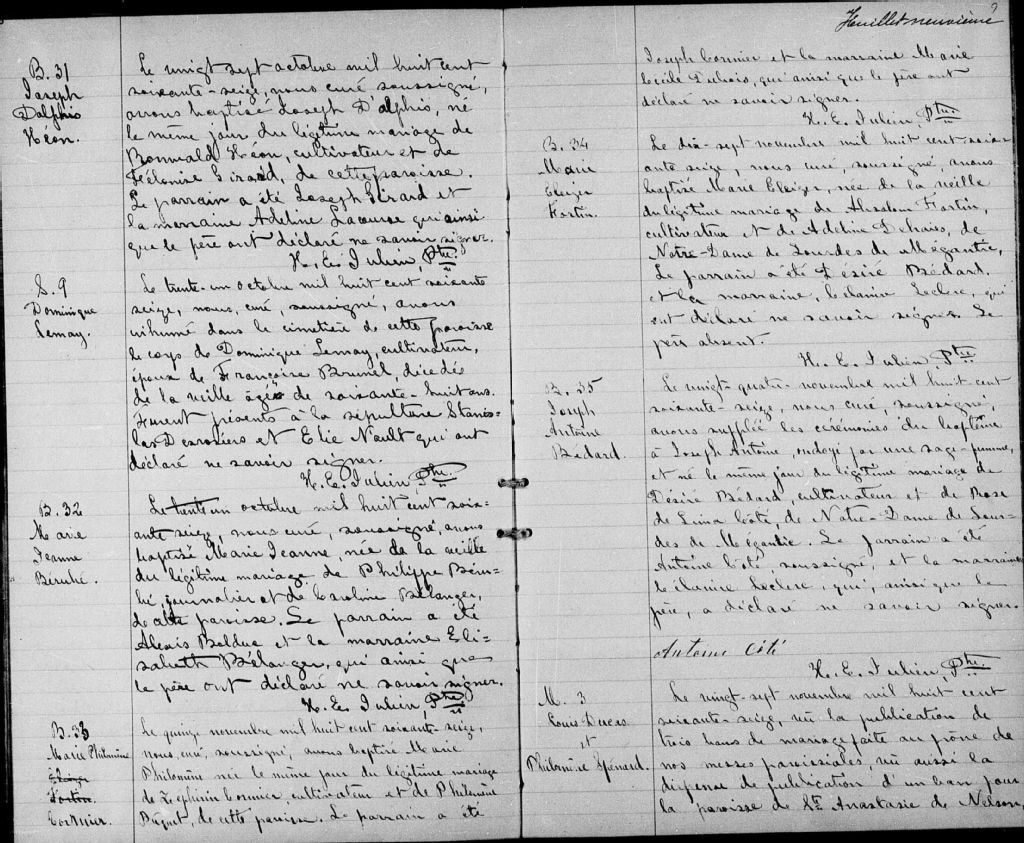 Feuillet neuvième 9
B. 31
Joseph
Dalphis
Héon.
Le vingt sept octobre mil huit cent
soixante-seize, nous curé soussigné,
avons baptisé Joseph D'alphis, né
le même jour du légitime mariage de
Romuald Héon, cultivateur et de
Héloïse Girard, de cette paroisse.
Le parrain a été Joseph Girard et
la marraine Adeline Lacourse qui ainsi
que le père ont déclaré ne savoir signer.
H. E. Julien, Ptre.
S. 9
Dominique
Lemay.
Le trente-un octobre mil huit cent soixante
seize, nous, curé, soussigné, avons
inhumé dans le cimetière de cette paroisse
le corps de Dominique Lemay, cultivateur,
époux de Françoise Brunel, décédé
de la veille âgé de soixante-huit ans.
Furent présents à la sépulture Stanis-
las Desrosiers et Elie Nault qui ont
déclaré ne savoir signer.
H. E. Julien, Ptre.
B. 32
Marie
Jeanne
Bérubé.
Le trente un octobre mil huit cent soix-
ante seize, nous curé, soussigné, avons
baptisé Marie Jeanne, née de la veille
du légitime mariage de Philippe Béru-
bé, journalier et de Caroline Bélanger,
de cette paroisse. Le parrain a été
Alexis Bolduc et la marraine Eli-
sabeth Bélanger, qui ainsi que
le père ont déclaré ne savoir signer.
H. E. Julien, Ptre
B. 33
Marie Philomène
Eleizer
Fortin.
Cormier.
Le quinze novembre mil huit cent soixante-seize,
nous, curé, soussigné, avons baptisé Marie
Philomène née le même jour du légitime mariage
de Zéphirin Cormier, cultivateur et de Philomène
Paquet, de cette paroisse. Le parrain a été
Joseph Cormier et la marraine Marie
Cécile Dubois, qui ainsi que le père ont
déclaré ne savoir signer.
H. E. Julien, Ptre.
B. 34
Marie
Eleizer
Fortin.
Le dix-sept novembre mil huit cent soix-
ante seize, nous curé, soussigné, avons
baptisé Marie Eleizer, née de la veille
du légitime mariage de Absolon Fortin,
cultivateur et de Adeline Dehais, de
Notre-Dame de Lourdes de Mégantic,
Le parrain a été Désiré Bédard.
et la marraine, Célanire Leclerc, qui
ont déclaré ne savoir signer. Le
père absent.
H. E. Julien, Ptre
B. 35
Joseph
Antoine
Bédard
Le vingt quatre novembre mil huit-cent
soixante-seize, nous curé, soussigné,
avons suppléé les cérémonies du baptême
à Joseph Antoine, ondoyé par une sage-femme,
et né le même jour du légitime mariage de
Désiré Bédard, cultivateur et de Rose
de Lima Côté, de Notre-Dame de Lour-
des de Mégantic. Le parrain a été
Antoine Côté, soussigné, et la marraine
Célanire Leclerc, qui, ainsi que le
père, a déclaré ne savoir signer.
Antoine Côté
H. E. Julien, Ptre.
M. 3
Louis Ducas
et
Philomène Spénard.
Le vingt-sept novembre mil huit cent
soixante-seize, vu la publication de
trois bans de mariage faite au prône de
nos messes paroissiales, vu aussi la
dispense de publication d'un ban pour
la paroisse de Ste Anastasie de Nelson,